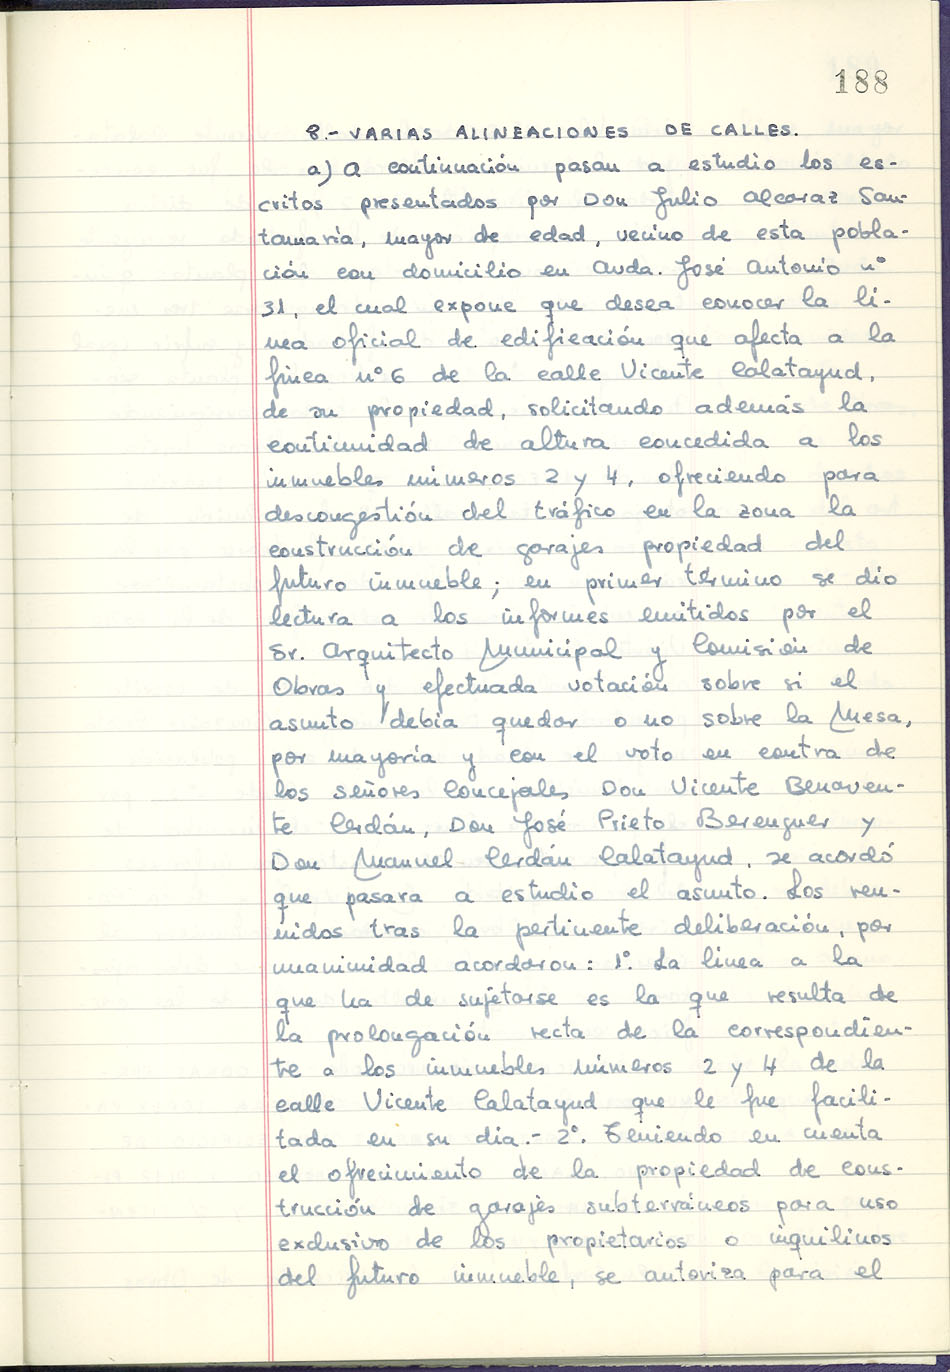 188
8.- VARIAS ALINEACIONES DE CALLES.
a) A continuación pasan a estudio los es-
critos presentados por Don Julio Alcaraz San-
tamaría, mayor de edad, vecino de esta pobla-
ción con domicilio en Avda. José Antonio nº
31, el cual expone que desea conocer la li-
nea oficial de edificación que afecta a la
finca nº 6 de la calle Vicente Calatayud,
de su propiedad, solicitando además la
continuidad de altura concedida a los
inmuebles números 2 y 4, ofreciendo para
descongestión del tráfico en la zona la
construcción de garajes propiedad del
futuro inmueble; en primer término se dio
lectura a los informes emitidos por el
Sr. Arquitecto Municipal y Comisión de
Obras y efectuada votación sobre si el
asunto debia quedar o no sobre la Mesa,
por mayoría y con el voto en contra de
los señores Concejales Don Vicente Benaven-
te Cerdán, Don José Prieto Berenguer y
Don Manuel Cerdán Calatayud, se acordó
que pasara a estudio el asunto. Los reu-
nidos tras la pertinente deliberación, por
unanimidad acordaron: 1º. La linea a la
que ha de sujetarse es la que resulta de
la prolongación recta de la correspondien-
te a los inmuebles números 2 y 4 de la
calle Vicente Calatayud que le fue facili-
tada en su dia.- 2º. Teniendo en cuenta
el ofrecimiento de la propiedad de cons-
trucción de garajes subterráneos para uso
exclusivo de los propietarios o inquilinos
del futuro inmueble, se autoriza para el